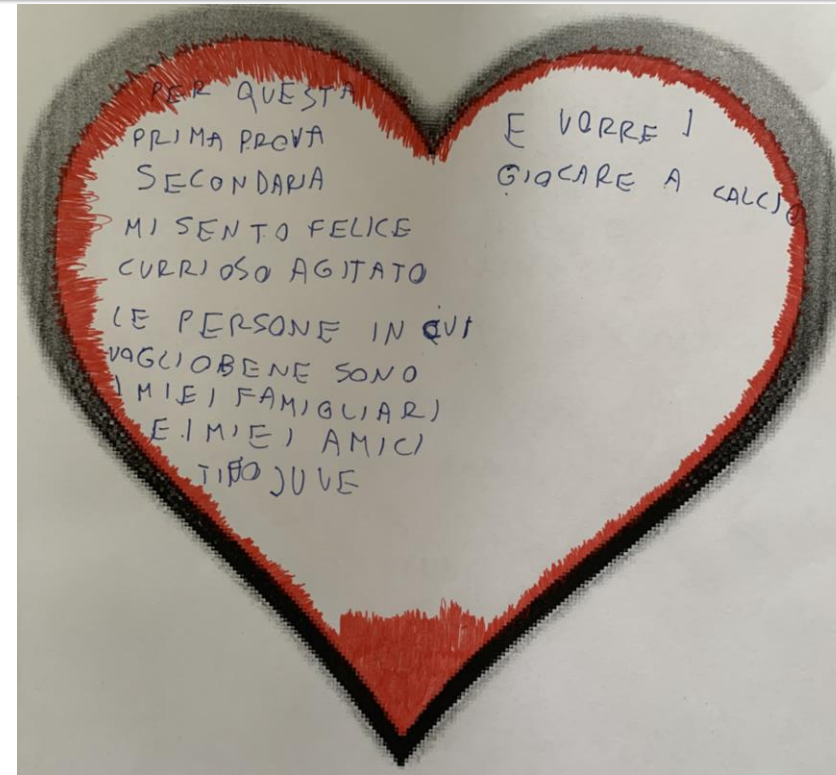 PER QUESTA
PRIMA PROVA
SECONDARIA
MI SENTO FELICE
CURRIOSO AGITATO
LE PERSONE IN CUI
VOGLIOBENE SONO
I MIEI FAMIGLIARI
E I MIEI AMICI
TIFO JUVE
E VORREI
GIOCARE A CALCIO